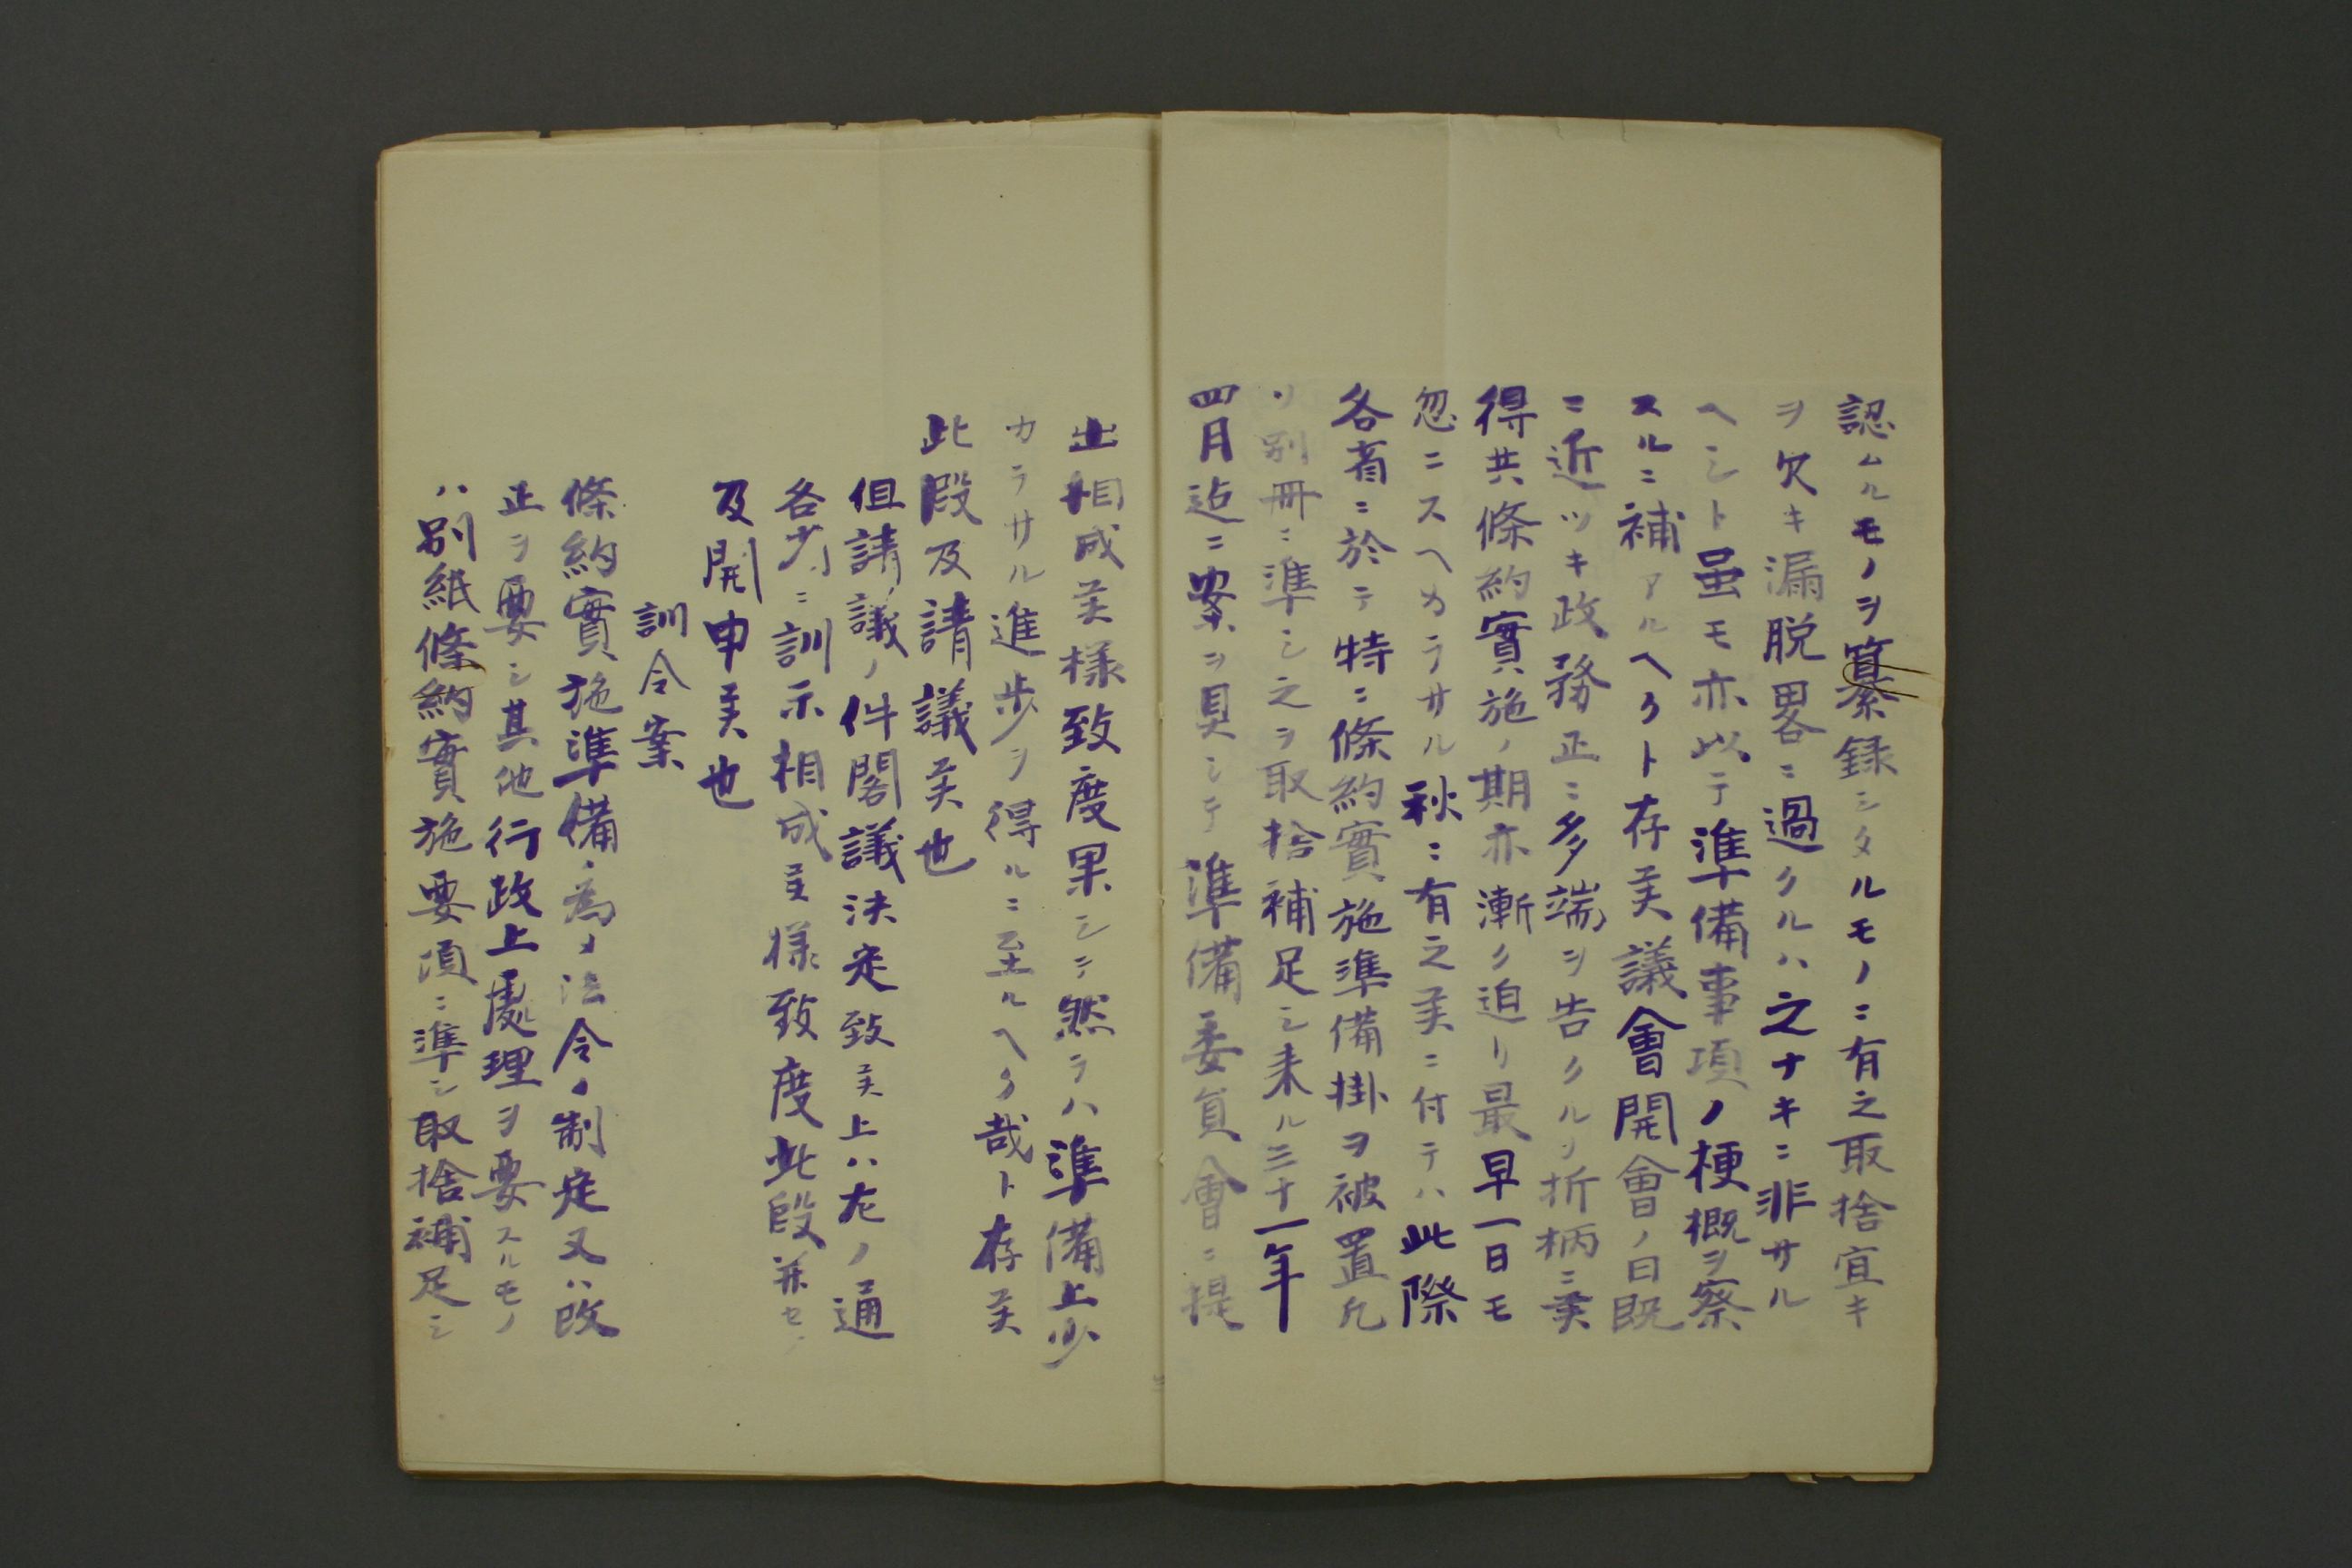 認ムルモノヲ纂録シタルモノニ有之取捨宜キ
ヲ欠キ漏脱畧ニ過クルハ之ナキニ非サル
ヘシト虽モ亦以テ準備事項ノ梗概ヲ察
スルニ補アルヘクト存候議會開會ノ日既
ニ近ツキ政務正ニ多端ヲ告クルノ折柄ニ候
得共條約實施ノ期亦漸ク迫リ最早一日モ
忽ニスヘカラサル秋ニ有之候ニ付テハ此際
各省ニ於テ特ニ條約實施準備掛ヲ被置凡
ソ別冊ニ準シ之ヲ取捨補足シ来ル三十一年
四月迠ニ案ヲ具シテ準備委員會ニ提
出相成候様致度果シテ然ラハ準備上少
カラサル進歩ヲ得ルニ至ルヘク哉ト存候
此段及請議候也
但請議ノ件閣議決定致候上ハ左ノ通
各省ニ訓示相成候様致度此段并セ
及開申候也
訓令案
條約實施準備ノ為メ法令ノ制定又ハ改
正ヲ要シ其他行政上處理ヲ要スルモノ
ハ別紙條約實施要項ニ準シ取捨補足シ